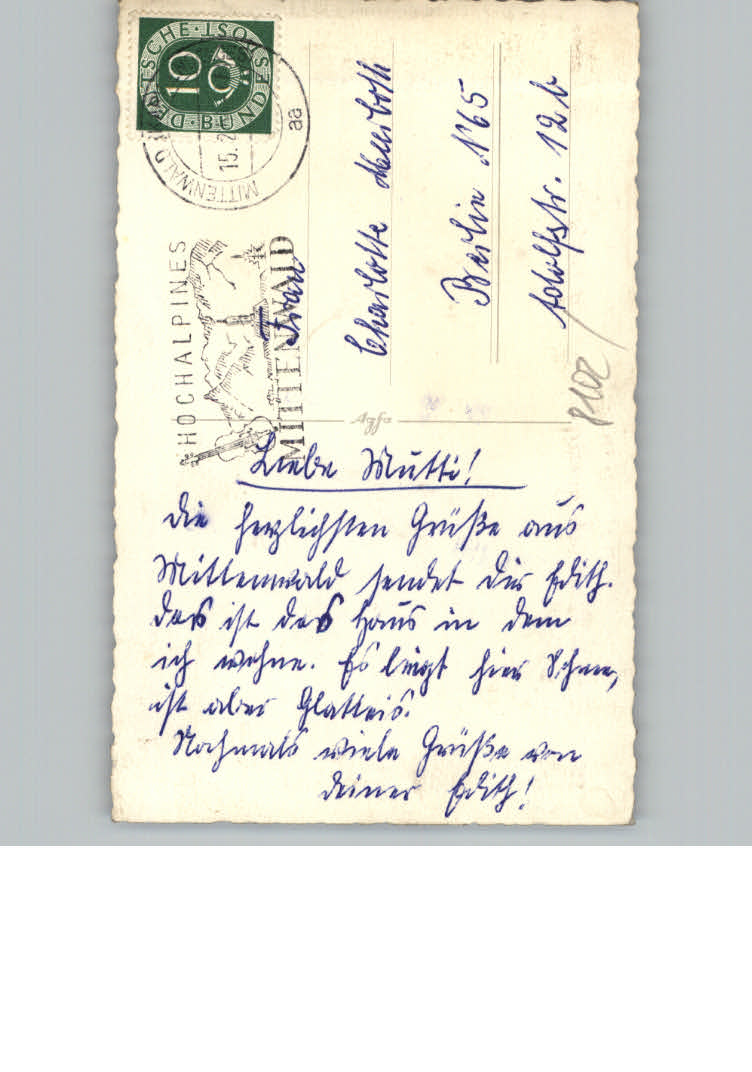 DEUTSCHE BUNDESPOST
10
MITTENWALD
15.2
aa
HOCHALPINES
MITTENWALD
Frau
Charlotte
Berlin N 65
Adolfstr. 12b
8102
Agfa
Liebe Mutti!
Die herzlichsten Grüße aus
Mittenwald sendet Dir Edith.
Das ist das Haus in dem
ich wohne. Es liegt hier Schnee,
ist aber Glatteis.
Nochmals viele Grüße von
Deiner Edith!